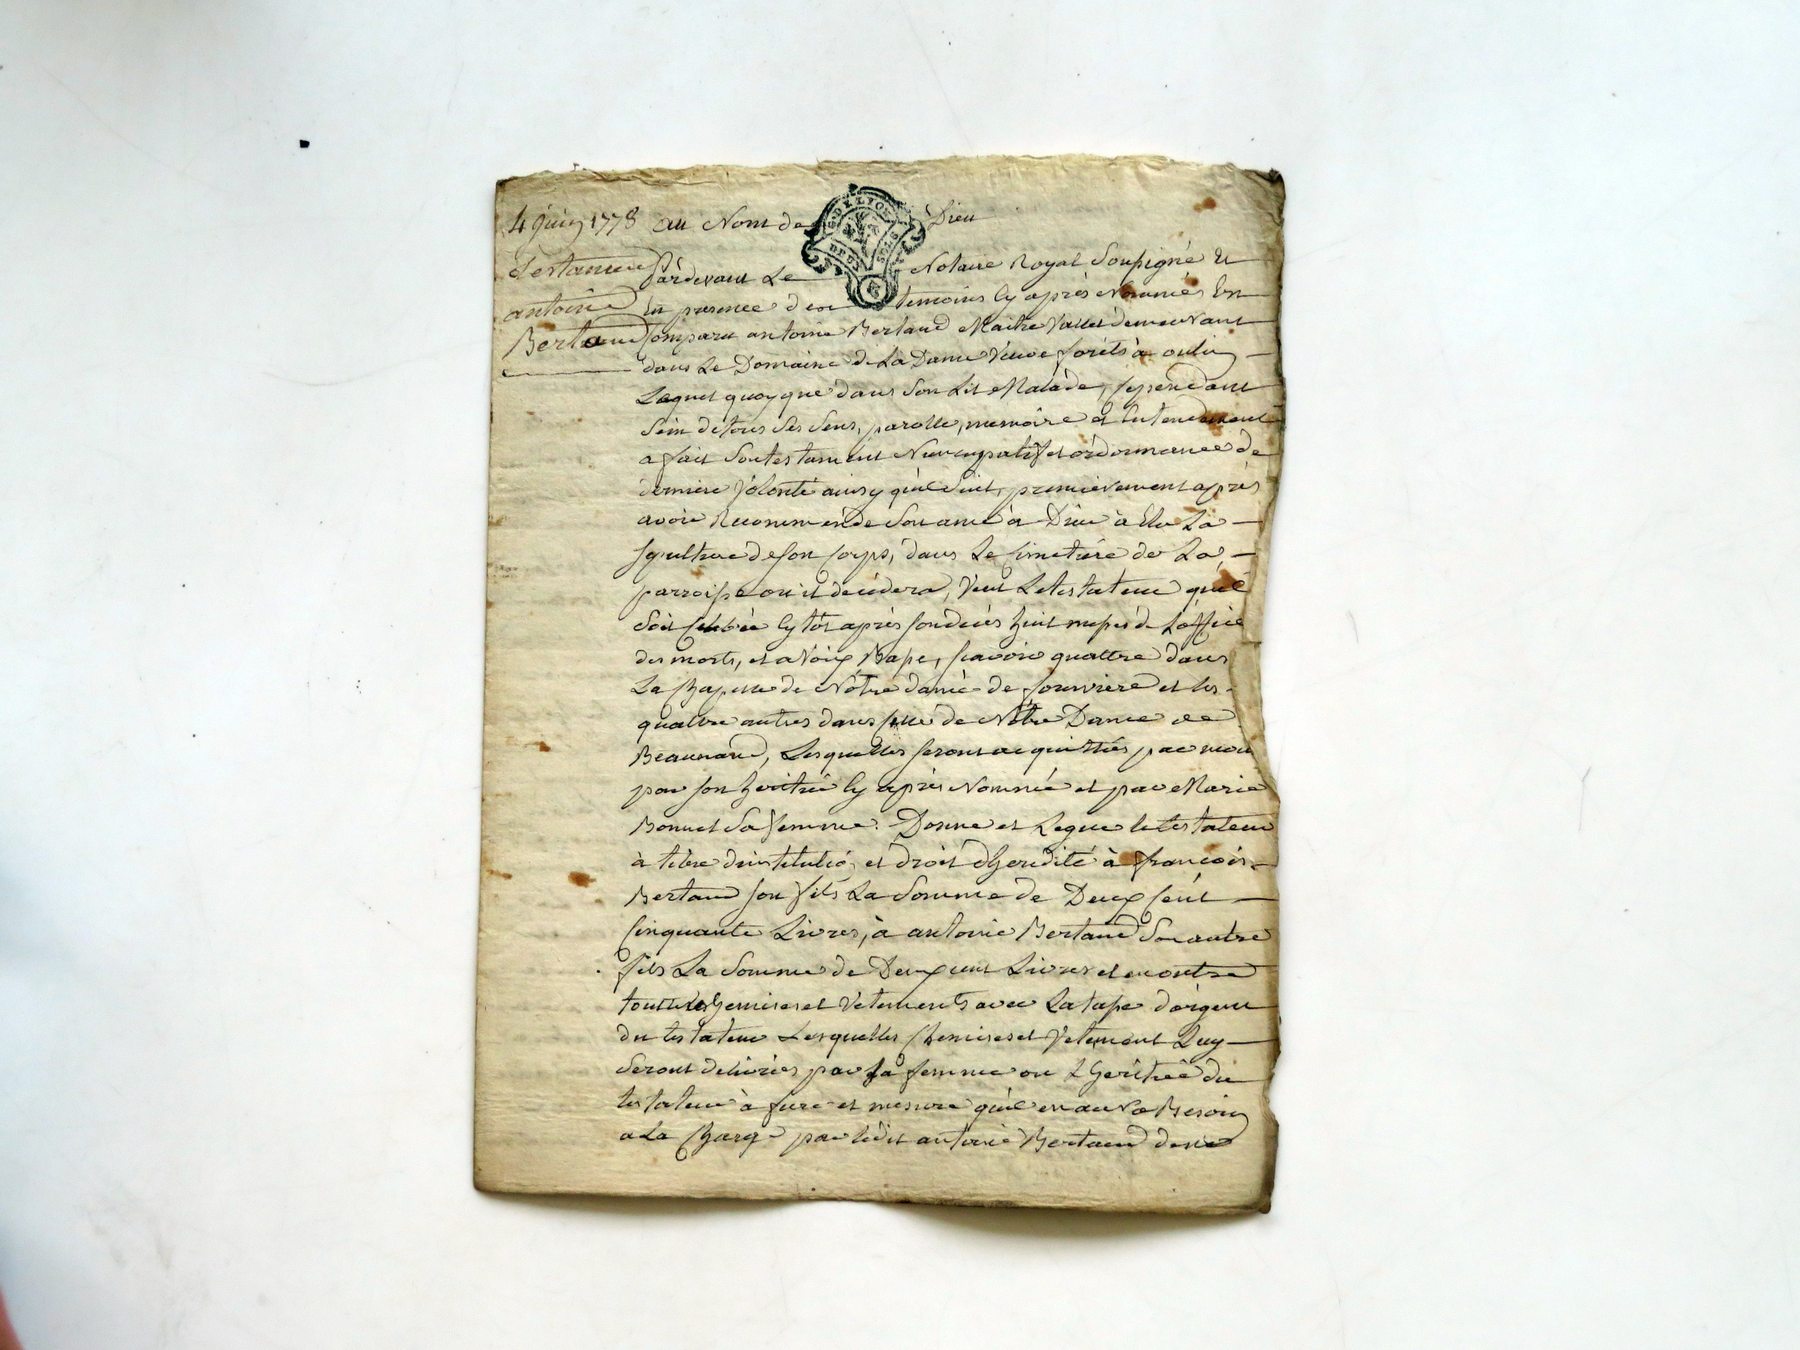 4 juin 1778 au Nom de Dieu
G. DE LYON
DEUX SOLS
testament
antoine
Bertaud
Pardevant Le Notaire Royal Soussigné Et
En presence des temoins Cy après Nommés En
Comparu antoine Bertaud Maitre Vallet demeurant
dans Le Domaine de La Dame Veuve forêts à oulin
Lequel quoyque dans Son Lit Malade, Cependant
Sein de tous Ses Sens, parolle, memoire et Entendement
a fait Son testament Nuncupatif et ordonnance de
derniere Volonté ainsy qu'il Suit, premierement après
avoir Recommendé Son ame à Dieu à Elu La
Sepulture de Son Corps, dans Le Cimetiere de La
parroisse ou il decedera, Veut Le testateur qu'il
Soit Celebrée Cy tôt après Son decés huit messes de L'office
des morts, et a Voix Basse, scavoir quattre dans
La Chapelle de Nôtre dame de fourviere et les
quattre autres dans Celle de Nôtre Dame de
Beaunand, Lesquelles Seront acquittées par
par Son heritié Cy après Nommé et par Marie
Bonnet Sa femme. Donne et Legue le testateur
à titre d'institutiō et droit d'heredité à françois
Bertaud Son fils La Somme de Deux Cent
Cinquante Livres, à antoine Bertaud Son autre
fils La Somme de Deux cent Livres et en outre
touttes Chemises et Vetements avec La tasse d'argent
du testateur Lesquelles Chemises et Vetement Luy
Seront delivrés par Sa femme ou L'heritié du
testateur à fure et mesure qu'il en aura Besoin
a La Charge par ledit antoine Bertaud de ne